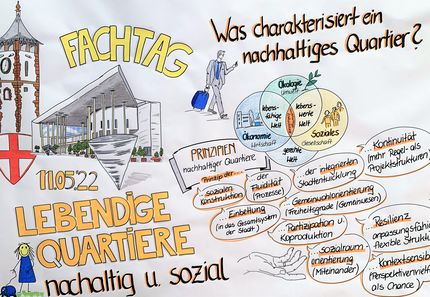 FACHTAG
11.05.22
LEBENDIGE
QUARTIERE
nachaltig u. sozial
Was charakterisiert ein
nachhaltiges Quartier?
Ökologie
Umwelt
lebens-
fähige
Welt
lebens-
werte
Welt
Ökonomie
Wirtschaft
Soziales
Gesellschaft
gerechte
Welt
PRINZIPIEN
nachhaltiger Quartiere
Prinzip der...
...sozialen
Konstruktion
...der
Fluidität
(Prozesse)
...der integrierten
Stadtentwicklung
...Kontinuität
(mehr Regel- als
Projektstrukturen)
...Einbettung
(in das Gesamtsystem
der Stadt)
...Gemeinwohlorientierung
(Freiheitsgrade | Gemeinsinn)
...Partizipation u.
Koproduktion
...Sozialraum-
orientierung
(Miteinander)
...Resilienz
anpassungsfähig
flexible Strukt
...Kontextsensib
(Perspektivenvielf
als Chance)